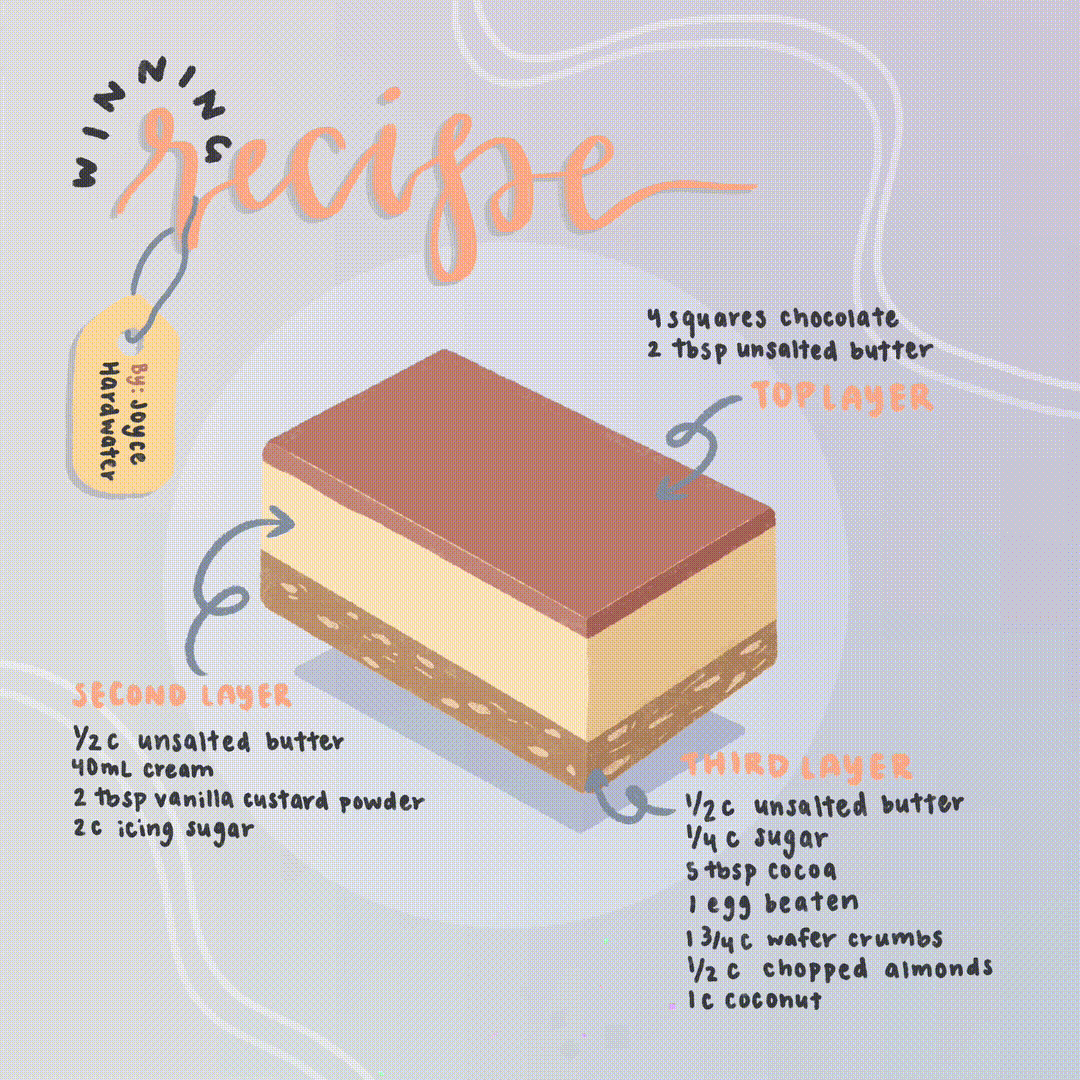 WINNING
recipe
By: Joyce
Hardwater
4 squares chocolate
2 tbsp unsalted butter
TOP LAYER
SECOND LAYER
1/2 c unsalted butter
40mL cream
2 tbsp vanilla custard powder
2 c icing sugar
THIRD LAYER
1/2 c unsalted butter
1/4 c sugar
5 tbsp cocoa
1 egg beaten
1 3/4 c wafer crumbs
1/2 c chopped almonds
1 c coconut